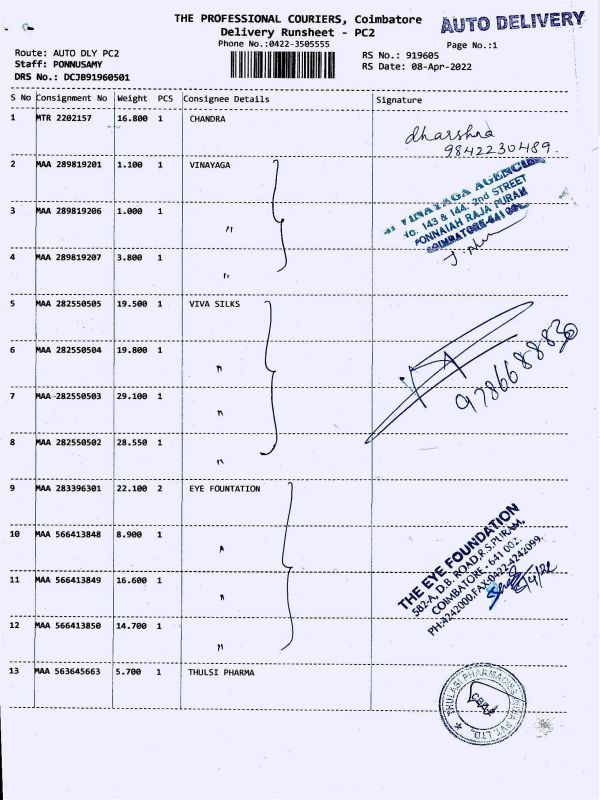 THE PROFESSIONAL COURIERS, Coimbatore
AUTO DELIVERY
Delivery Runsheet - PC2
Phone No.:0422-3505555
Page No.:1
Route: AUTO DLY PC2
RS No.: 919605
Staff: PONNUSAMY
RS Date: 08-Apr-2022
DRS No.: DCJB91960501
S No Consignment No Weight PCS Consignee Details Signature
1 MTR 2202157 16.800 1 CHANDRA
dharshna
9842230489.
2 MAA 289819201 1.100 1 VINAYAGA
VINAYAGA AGENCIES
No. 143 & 144, 2nd STREET
PONNAIAH RAJA PURAM
COIMBATORE-641 001
3 MAA 289819206 1.000 1
"
4 MAA 289819207 3.800 1
"
5 MAA 282550505 19.500 1 VIVA SILKS
6 MAA 282550504 19.800 1
"
9786688830
7 MAA 282550503 29.100 1
"
8 MAA 282550502 28.550 1
"
9 MAA 283396301 22.100 2 EYE FOUNTATION
10 MAA 566413848 8.900 1
"
THE EYE FOUNDATION
582-A, D.B. ROAD,R.S.PURAM,
COIMBATORE - 641 002.
PH:4242000,FAX:0422-4242099.
8/4/22
11 MAA 566413849 16.600 1
"
12 MAA 566413850 14.700 1
"
13 MAA 563645663 5.700 1 THULSI PHARMA
THULASI PHARMACIES INDIA PVT. LTD.